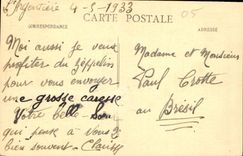 L'Argentière 4-5-1933
05
CARTE POSTALE
CORRESPONDANCE
ADRESSE
Moi aussi je veux
profiter du zéppelin
pour vous envoyer
une grosse caresse
Votre belle-
qui pense à vous
bien souvent - Clarisse
Madame et Monsieur
Paul Crotte
au Brésil